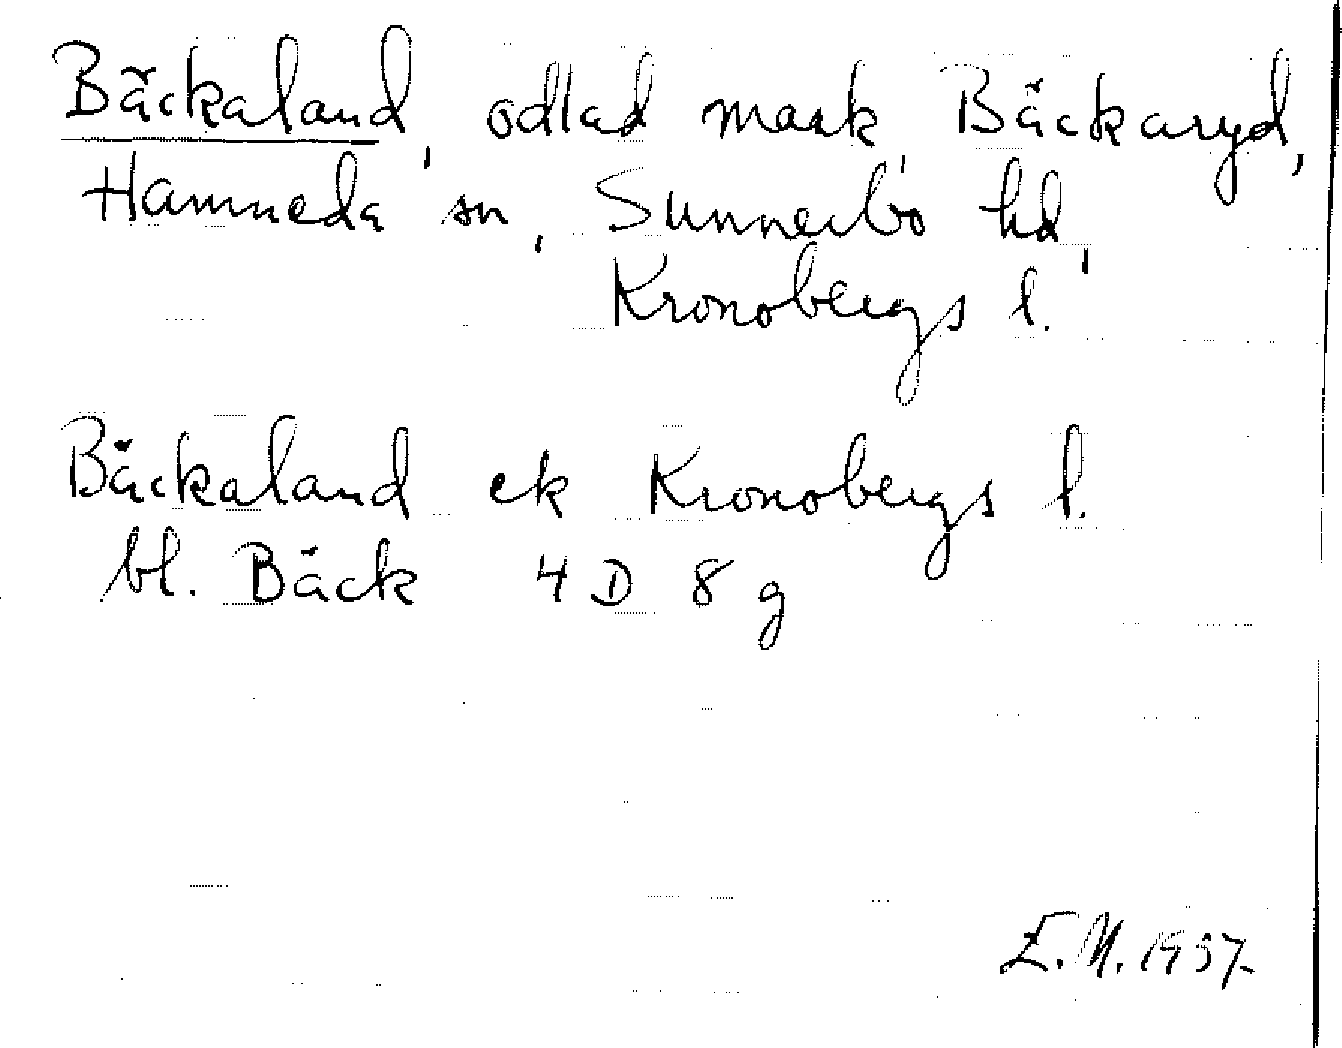 Bäckaland, odlad mark, Bäckaryd,
Hamneda sn, Sunnerbo hd,
Kronobergs l.
Bäckaland ek Kronobergs l.
bl. Bäck 4 D 8 g
E.M. 1937